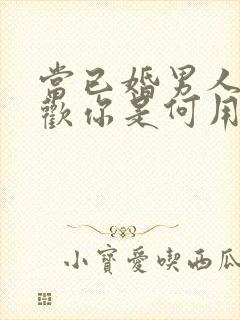 當已婚男人
歡你是何用
小寶愛喫西瓜